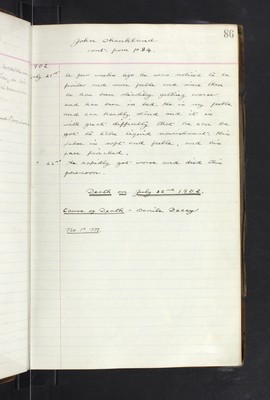 86
John Shankland
cont. from p 84.
1902
July 21st A few weeks ago he was noticed to be
feebler and more feeble and since then
he has been steadily getting worse
and has been in bed. He is very feeble
and can hardly stand and it is
with great difficulty that he can be
got to take any nourishment. His
pulse is soft and feeble, and his
face pinched.
" 22nd He rapidly got worse and died this
forenoon.
Death on July 22nd 1902.
Cause of Death - Senile Decay